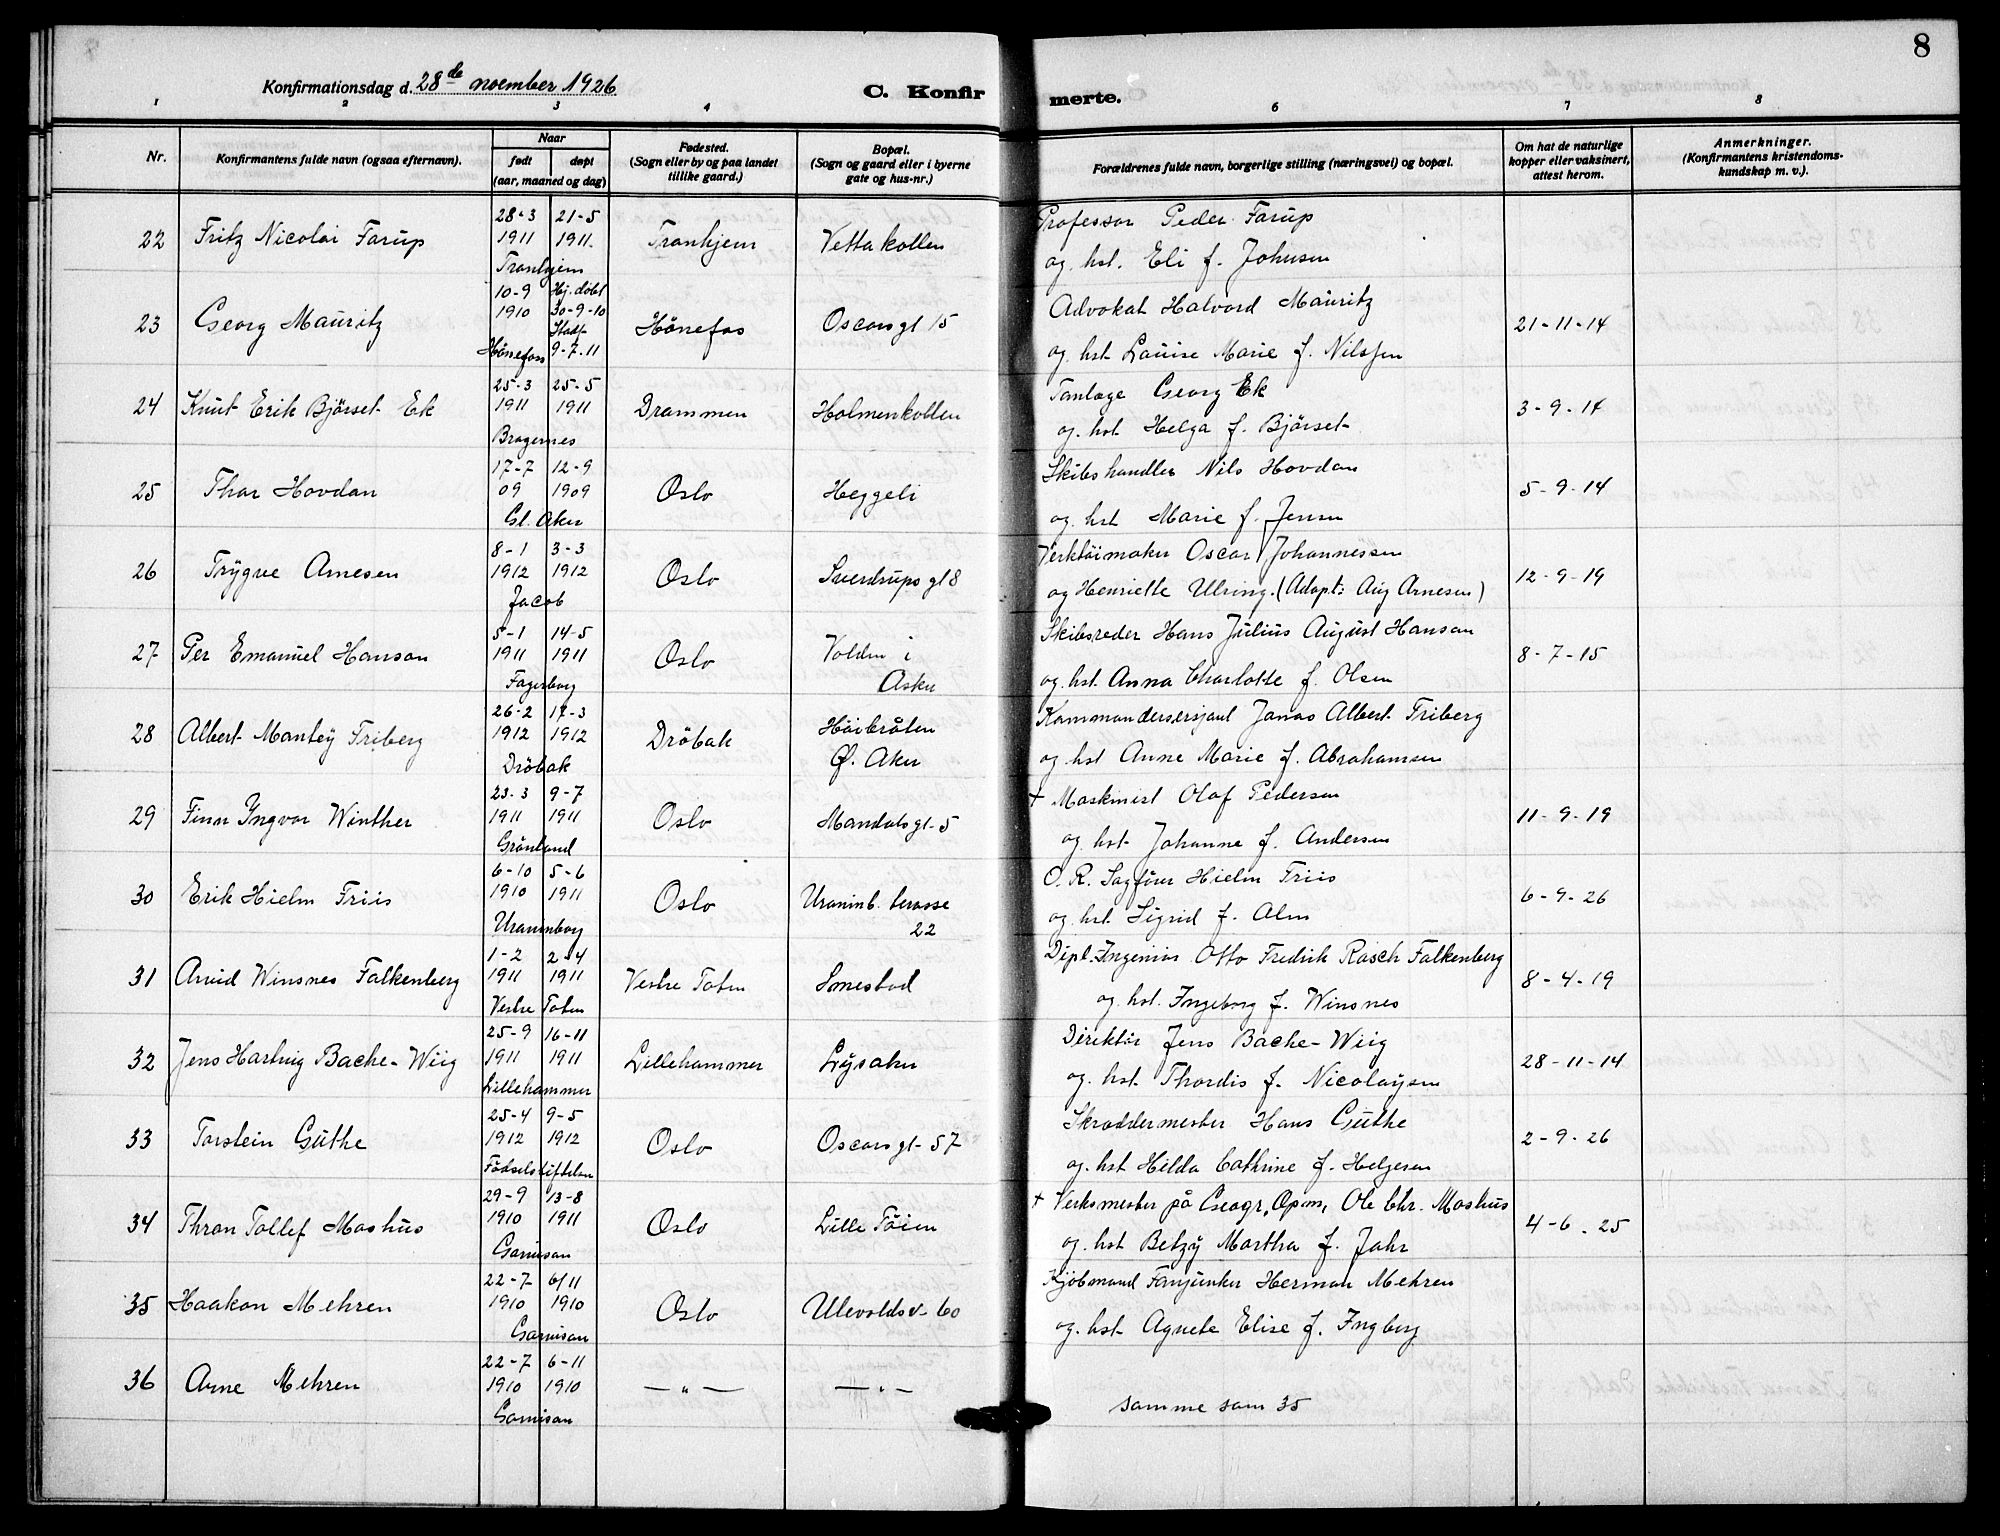 8
Konfirmationsdag d. 28de noember 1926
C. Konfirmerte.
1 2 3 4 6 7 8
Nr.
Konfirmantens fulde navn (ogsaa efternavn).
Naar
født døpt
(aar, maaned og dag)
Fødested.
(Sogn eller by og paa landet
tillike gaard.)
Bopæl.
(Sogn og gaard eller i byerne
gate og hus-nr.)
Forældrenes fulde navn, borgerlige stilling (næringsvei) og bopæl.
Om hat de naturlige
kopper eller vaksinert,
attest herom.
Anmerkninger.
(Konfirmantens kristendoms-
kundskap m. v.).
28-3 21-5 Professor Peder Farup
22 Fritz Nicolai Farup 1911 1911 Tronhjem Vettakollen
Tronhjem og hst. Eli f. Johnsen
10-9 Hj. döbt Advokat Halvord Mauritz
23 Georg Mauritz 1910 30-9-10 Hönefos Oscarsgt 15 21-11-14
Stadf.
Hönefoss 9-7-11 og hst Lauise Marie f. Nilssen
25-3 25-5 Tanlæge Georg Ek
24 Knut Erik Björset Ek 1911 1911 Drammen Holmenkollen 3-9-14
Bragernes og hst Helga f. Björset
17-7 12-9 Skibshandler Nils Hovdan
25 Thor Hovdan 09 1909 Oslo Heggeli 5-9-14
Gl. Aker og hst Marie f. Jensen
8-1 3-3 Verktöimaker Oscar Johannessen
26 Trygve Arnesen 1912 1912 Oslo Sverdrupsgt 8 12-9-19
Jacob og Henriette Ulring. (Adopt: Aug Arnesen)
5-1 14-5 Skibsreder Hans Julius August Hanson
27 Per Emanuel Hanson 1911 1911 Oslo Volden i 8-7-15
Fagerborg Asker og hst. Anna Charlotte f. Olsen
26-2 17-3 Kommandersersjant Jonas Albert Friberg
28 Albert Mantey Friberg 1912 1912 Dröbak Höibråten
Dröbak Ø. Aker og hst Anne Marie f. Abrahamsen
23-3 9-7 + Maskinist Olaf Pedersen
29 Finn Yngvar Winther 1911 1911 Oslo Mandalsgt-5 11-9-19
Grönland og hst Johanne f. Andersen
6-10 5-6 O. R. Sagförer Hielm Friis
30 Erik Hielm Friis 1910 1911 Oslo Uraninb. terasse 6-9-26
Uraninborg 22 og hst. Sigrid f. Alm
1-2 2-4 Dipl. Ingeniör Otto Fredrik Rasch Falkenberg
31 Arvid Winsnes Falkenberg 1911 1911 Vestre Toten Smestad 8-4-19
Vestre Toten og hst. Ingeborg f. Winsnes
25-9 16-11 Direktör Jens Bache-Wiig
32 Jens Hartvig Bache-Wiig 1911 1911 Lillehammer Lysaker 28-11-14
Lillehammer og hst Thordis f. Nicolaysen
25-4 9-5 Skræddermester Hans Güthe
33 Torstein Güthe 1912 1912 Oslo Oscarsgt-57 2-9-26
Födselstiftelsen og hst Hilda Cathrine f. Helgesen
29-9 13-8 + Verksmester på Geogr. Opm, Ole Chr. Moshus
34 Thron Tollef Moshus 1910 1911 Oslo Lille Töien 4-6-25
Garnison og hst Betzy Martha f. Jahr
22-7 6/11 Kjöbmand Fanjunker Herman Mehren
35 Haakon Mehren 1910 1910 Oslo Ulevoldsv-60
Garnison og hst Agnete Elise f. Ingberg
22-7 6-11
36 Arne Mehren 1910 1910 — „ — — „ —
Garnison samme som 35